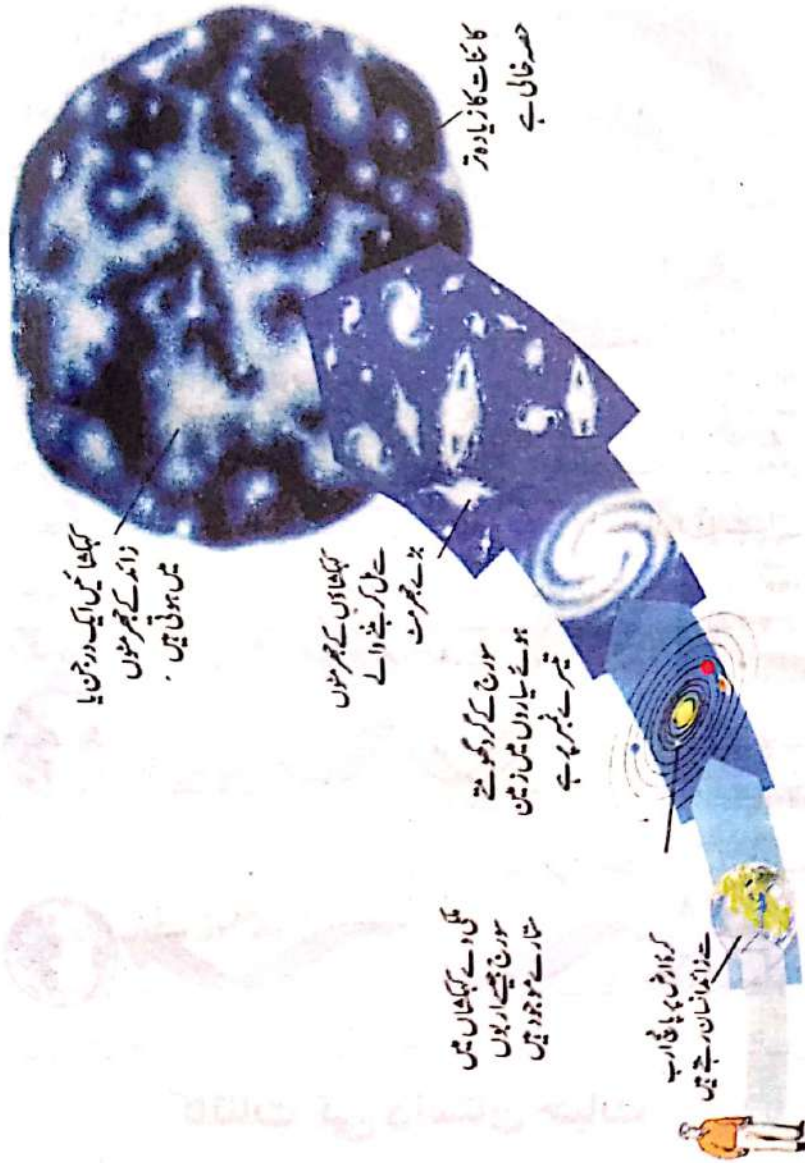 کائنات کا زیادہ تر
حصہ خالی ہے
کہکشائیں ایک درجن یا
زائد کے جھرمٹوں
میں ہوتی ہیں ۔
کہکشاؤں کے جھرمٹوں
سے مل کر بننے والے
بڑے جھرمٹ
سورج کے گرد گھومتے
ہوئے سیاروں میں زمین
تیسرے نمبر پر ہے
ملکی وے کہکشاں میں
سورج جیسے اربوں
ستارے موجود ہیں
کرۂ ارض پر پانچ ارب
سے زائد انسان رہتے ہیں